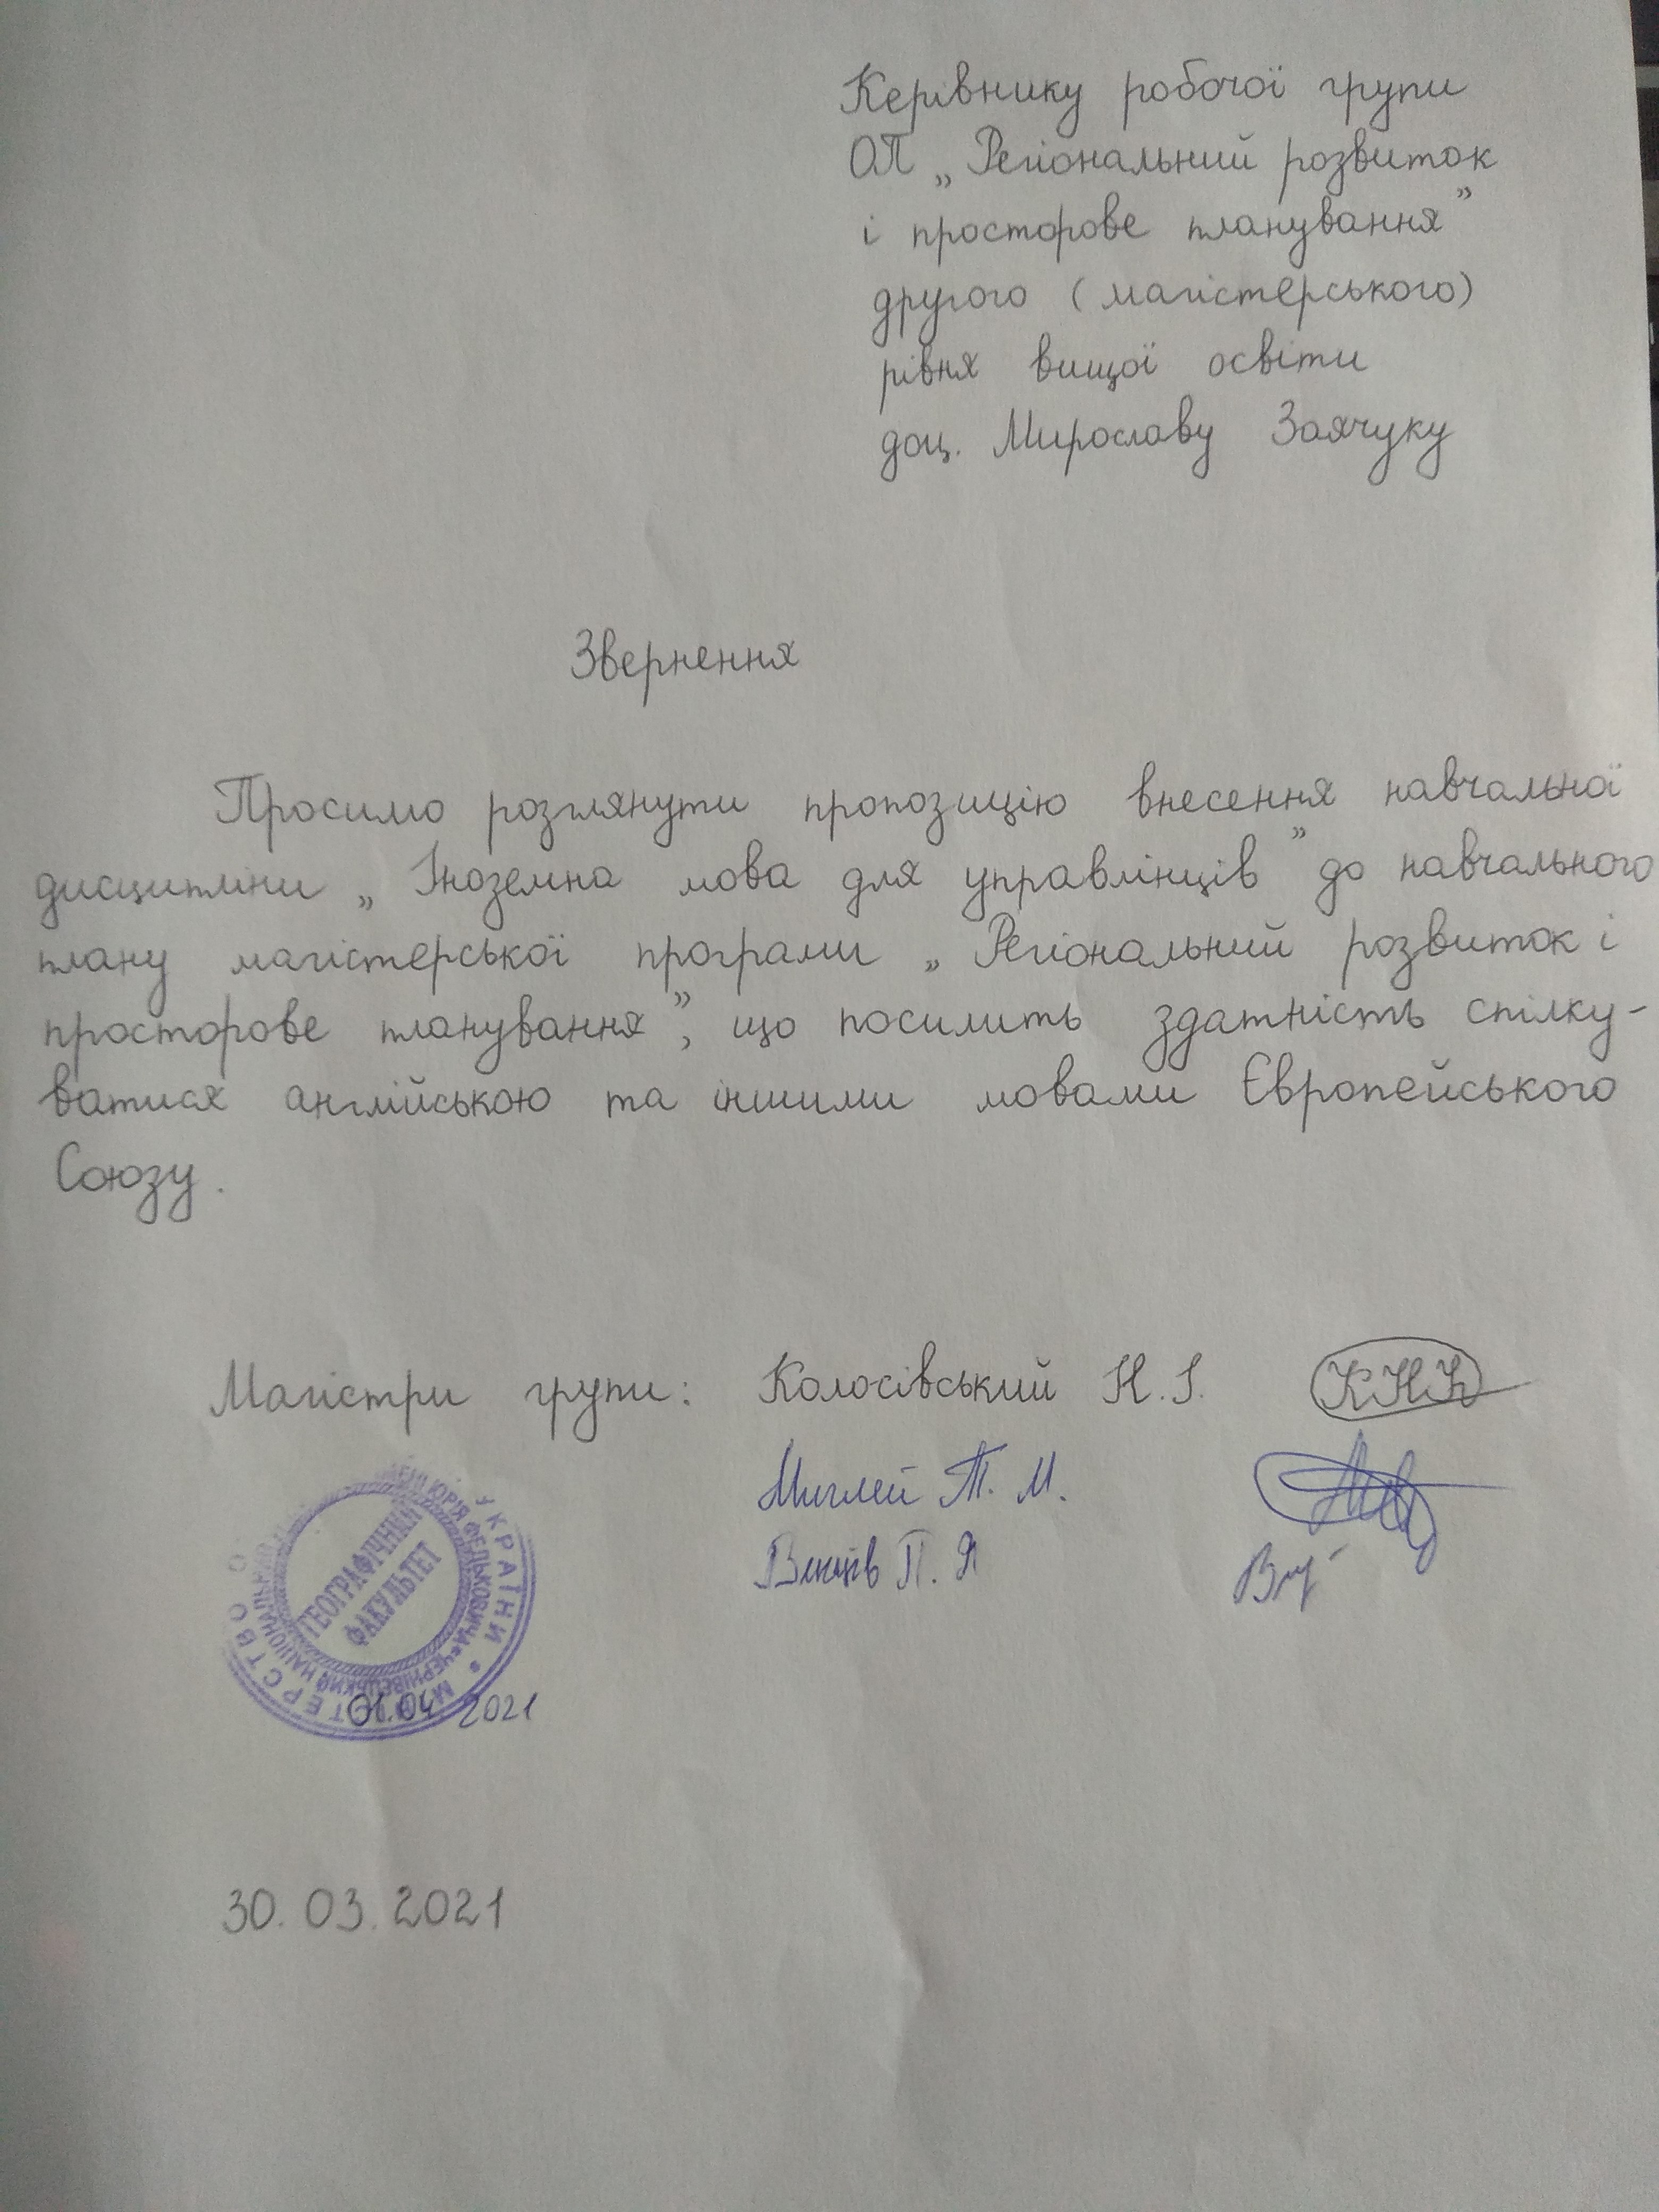 Керівнику робочої групи
ОП „Регіональний розвиток
і просторове планування”
другого (магістерського)
рівня вищої освіти
доц. Мирославу Заячуку
Звернення
Просимо розглянути пропозицію внесення навчальної
дисципліни „Іноземна мова для управлінців” до навчального
плану магістерської програми „Регіональний розвиток і
просторове планування”, що посилить здатність спілку-
ватися англійською та іншими мовами Європейського
Союзу.
Магістри групи: Колосівський Н. І. КНК
Миглей Т. М.
П. Я
УКРАЇНИ • МІНІСТЕРСТВО
ЮРІЯ ФЕДЬКОВИЧА ЧЕРНІВЕЦЬКИЙ НАЦІОНАЛЬНИЙ
ГЕОГРАФІЧНИЙ
ФАКУЛЬТЕТ
01.04 2021
30.03.2021